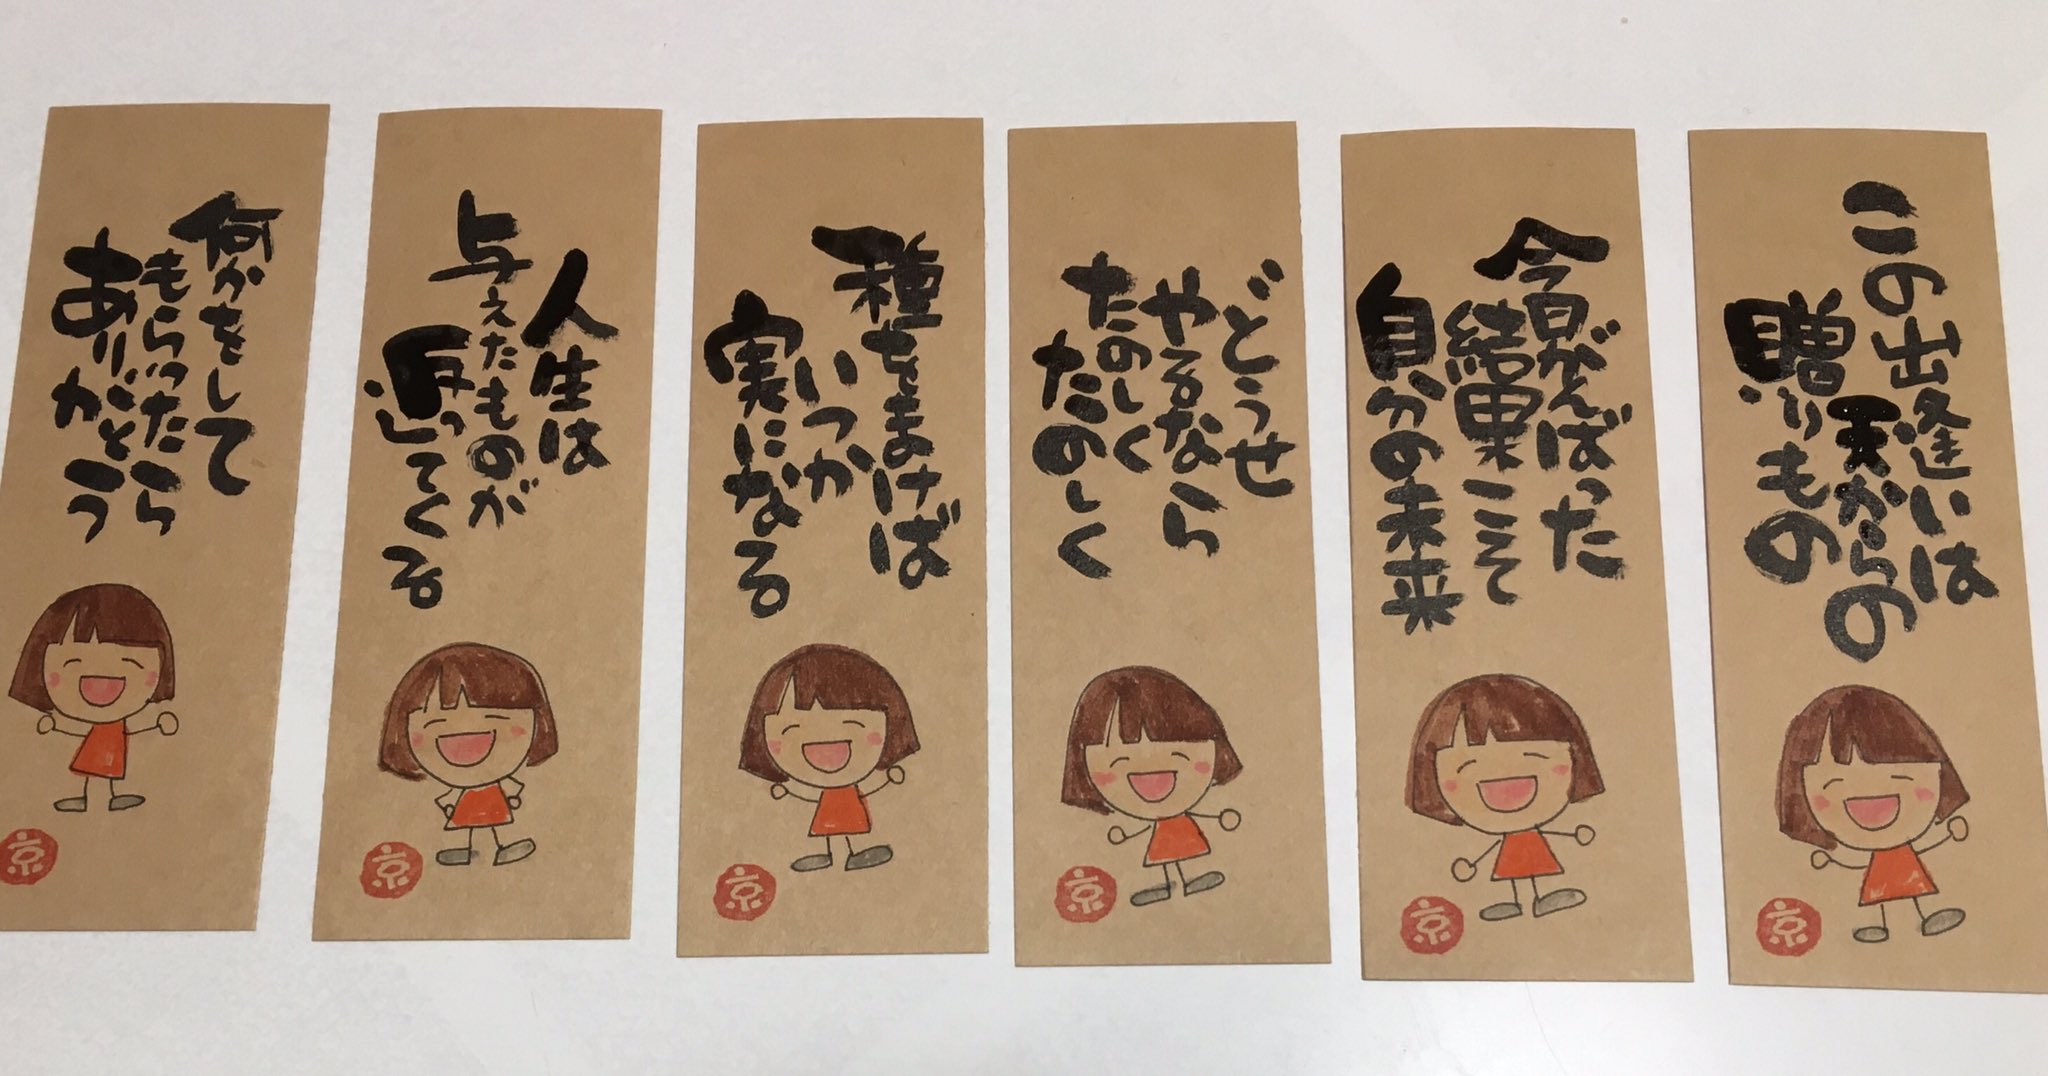 何かをして
もらったら
ありがとう
京
人生は
与えたものが
返ってくる
京
種をまけば
いつか
実になる
京
どうせ
やるなら
たのしく
たのしく
京
今日がんばった
結果こそ
自分の未来
京
この出逢いは
天からの
贈りもの
京